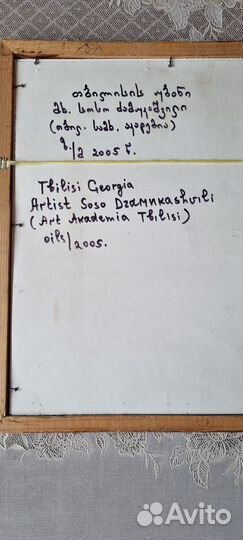 თბილისის უბანი
მხ. სოსო ძამუკაშვილი
(თბილ. სამხ. აკადემია)
ზ/მ 2005 წ.
Tbilisi Georgia
Artist Soso Dzamukashvili
(Art Akademia Tbilisi)
oils/2005.
Avito